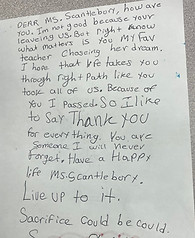 DEAR MS. Scantlebury, how are
you. Im not good because your
leaveing us. But right know
what matters is you MY FAV
teacher Choseing her dream.
I hope that life takes you
through right Path like you
took all of us. Because of
you I Passed. So I like
to Say Thank you
for everything. You are
Someone I will Never
Forget. Have a HAPPY
life Ms. Scantlebory.
Live up to it.
Sacrifice could be could.